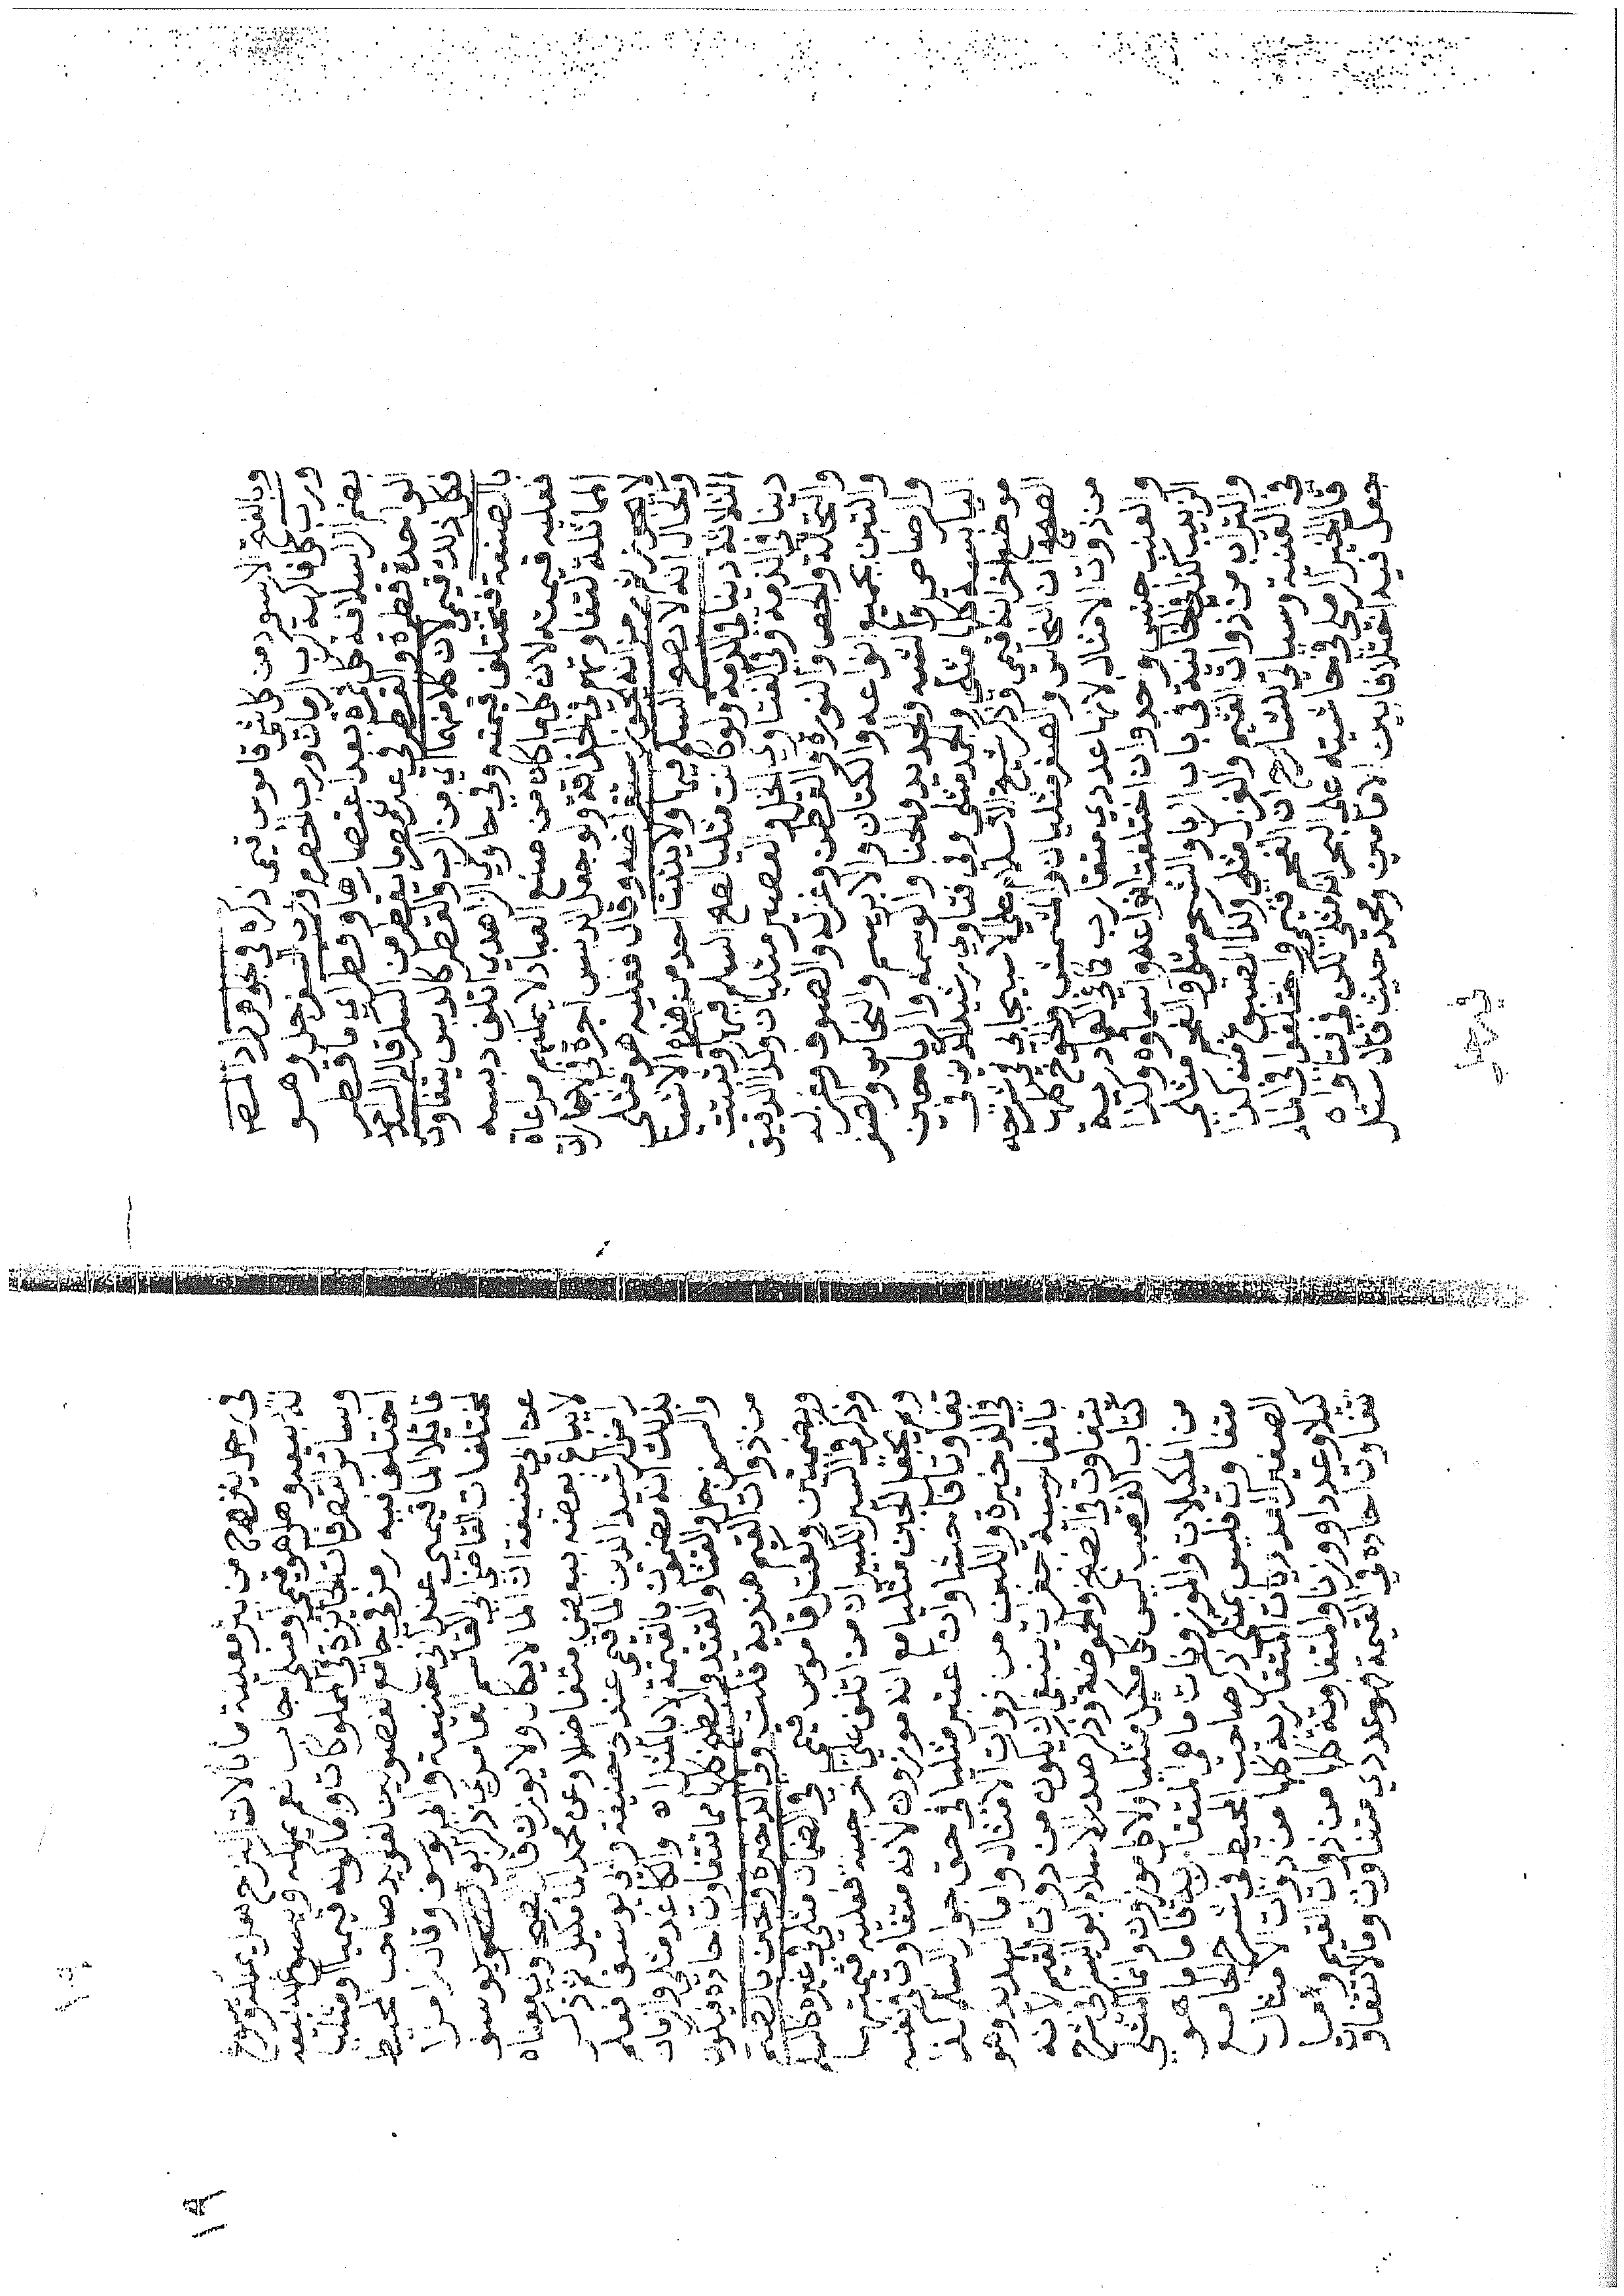 وبالفتح الاسود من كل شي قاموس قيمي ذكره في جواهر زاد
ورب كل فاكهة كرب الرمان ورب الحصرم ورب السفرجل وهو
بضم الرا سلافة كل ثمرة بعد اعتصارها وقطر اي ما قطر
الواحدة قطرة والقطر في عرف مصر ما يقطر من السكر قال السيد
فكل ذلك قيمي لان كلا منهما اي من الرب والقطر كالدبس يتفاوت
بالصنعة فتختلف قيمته وفي حاوي الزاهدي اتلف دبسه
فعليه قيمته لان كل ما كان من صنع العباد لا يمكنهم مراعاة
المماثلة لتفاوتهم في الحذاقة ولو جعل الدبس اجرة في الاجارات
لا يجوز ثم رمز انه يجوز استقراضه وقال فعليه هو مثلي
والحال انه لا يصح السلم فيها ولا يثبت احد من هذه الاشيا
الثلاثة دينا في الذمه ولو كانت مثليا لصح السلم فيها وتثبت
دينا في الذمة وفي الفتاوي الخل والعصير مثليان وكذا الدقيق
والنخالة والجص والنورة والقطن وغزله والصوف وغزله
والتبن بجميع انواعه والكتان والابريسم والنحاس والصفر
والرصاص والشبه والحديد والحنا والوسمه والرياحين
اليابسة كلها مثلي والجمد مثلي وفي فتاوي رشيد الدين في
موضع اخر انه قيمي وذكر شيخ الاسلام علي الاسبيجابي في شرحه
الصحيح ان النحاس والصفر مثليان والمشمش والخوخ كلها
من ذوات الامثال لانها عددي متقارب كما في العمادية
والعنب جنس واحد وان اختلفت انواعه واسماوه وكذا
الزبيب كذا في الخانية في باب الربا والشحم مثلي والفحم مثلي
والتراب من ذوات القيم والغزل مثلي وكذا المصبوغ منه كذا
في القنية وسياتي للشارح ان الفحم قيمي واختلفوا في الماء
قال الخير الرملي في حاشيته على البحر انه مثلي لكن في فتاواه
جعل فيه اختلافا بين الامامين ومحمد حيث قال سئل
في رجل
١٩
في رجل ينزح من بير معينة بالات النزح هل يملكه ويسوغ
له بيعه وهل هو قيمي او مثلي اجاب نعم يملكه ويسوغ له بيعه
وسائر التصرفات الجائزة في المملوكات وما كونه قيميا او مثليا
اختلف فيه رمز في جامع الفصولين لفوائد صاحب المحيط
قائلا الماء قيمي عند ابي حنيفة وابي يوسف وقال رامزا
لمختلفات القاضي ابي القاسم العامري ذكر ابو يوسف
عن ابي حنيفة ان الماء لا يكال ولا يوزن قال بعضهم معناه
لا يباع بعضه ببعض متفاضلا وعن محمد الماء مكيل ثم ذكر
رامزا لرشيد الدين الماء قيمي عند ابي حنيفة وابي يوسف فعلم
بذلك انه مضمون بالقيمة لا بالمثل اه والكاغد مثلي والرمان
والسفرجل والقثا والقثد والبطيخ كلها مما تتفاوت احاده فيكون
من ذوات القيم هنديه قلت وفي الذخيرة والجبن بالضم
وبضمتين وكعتل قاموس قيمي في الضمان مثلي في غيره كالسلم
وذكر في السير الكبير ان من اتلف علي اخر جبنه فعليه قيمتها
ولم يجعل الجبن مثليا مع انه موزون لانه متفاوت في نفسه
تفاوتا فاحشا وان اعتبر مثليا في حق جواز السلم كذا
في الذخيرة واللبن من ذوات الامثال واما وهو
بالفارسية جغرات ينبغي ان يكون من ذوات القيم لانه
يتفاوت في الطبخ والحموضة وذكر صدر الاسلام ابو اليسر في شرح
كتاب الغصب ليس كل مكيل مثليا ولا كل موزون وانما المثلي
من المكيلات والموزونات ما هي متقاربة فاما ما هو
متفاوت فليس بمثلي ذكر صاحب المحيط في شرح الجامع
الصغير العدديات المتقاربة كلها من ذوات الامثال
كيلا وعددا ووزنا والمتفاوتة كلها من ذوات القيم وما
تتفاوت احاده في القيمة فهو عددي متفاوت وما لا تتفاوت